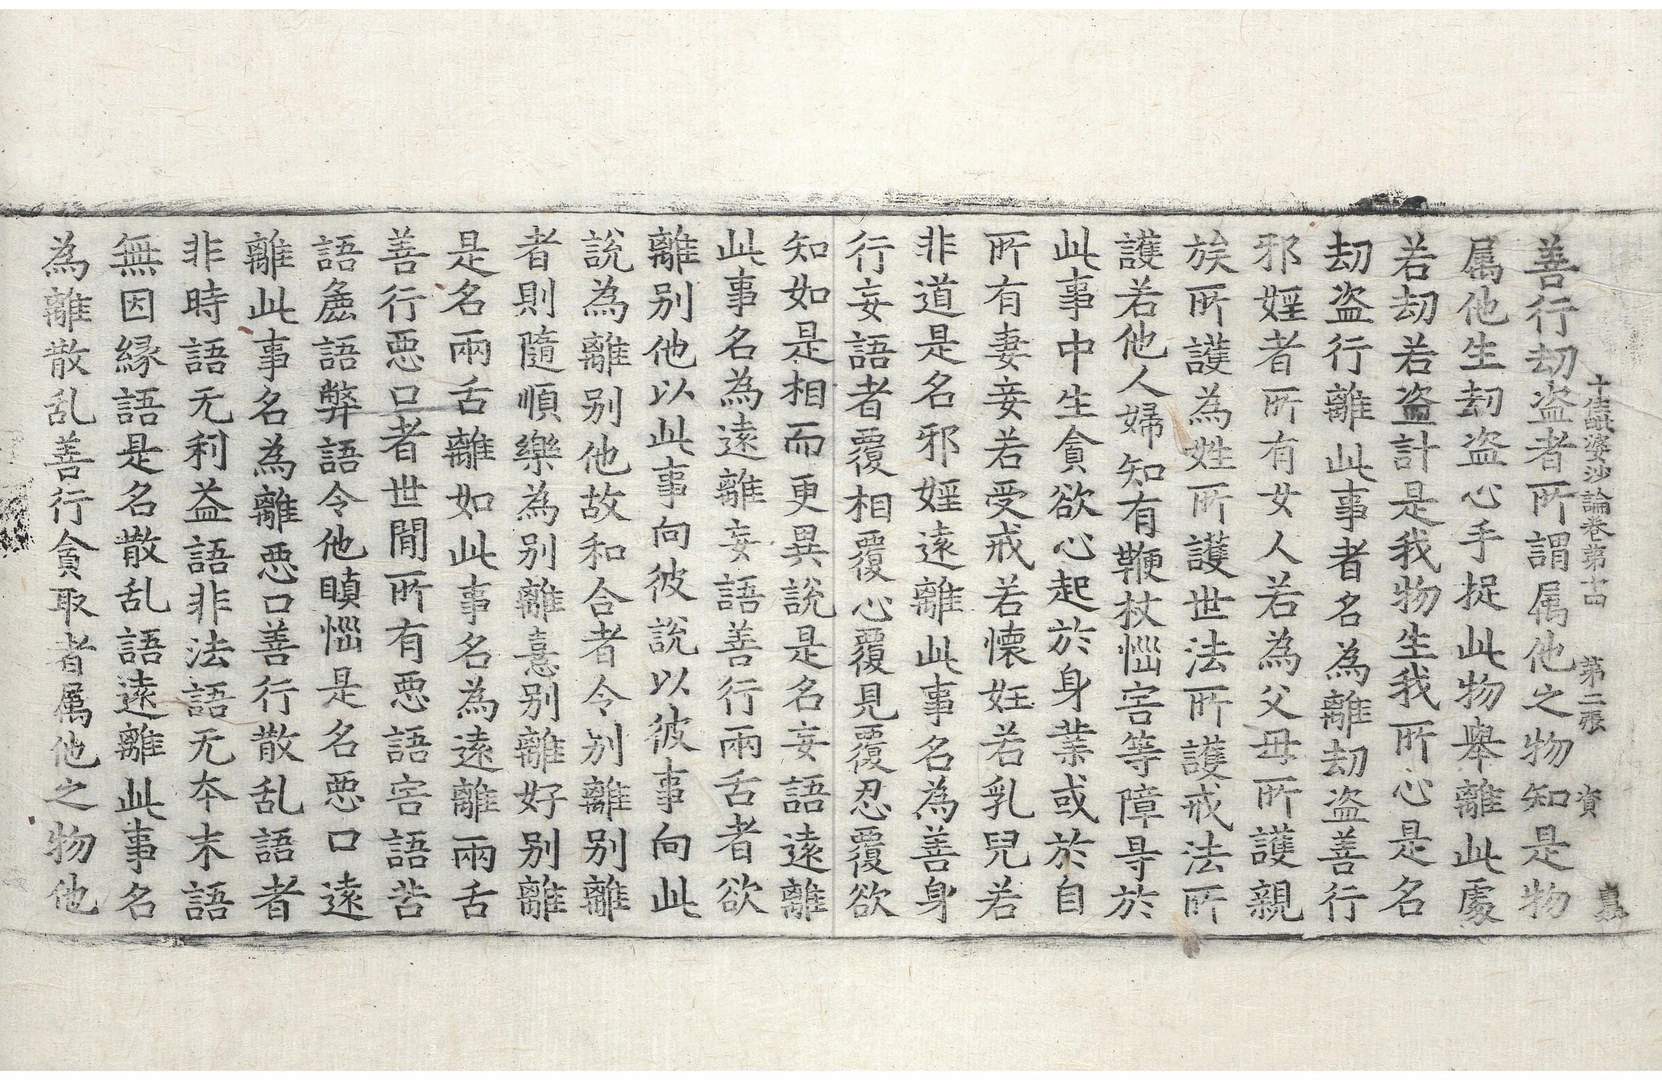 十住毗婆沙論卷第十四　第二張　資
善行刧盗者所謂属他之物知是物
属他生刧盗心手捉此物舉離此處
若刧若盗計是我物生我所心是名
刧盗行離此事者名為離刧盗善行
邪婬者所有女人若為父母所護親
族所護為姓所護世法所護戒法所
護若他人婦知有鞭杖惱害等障㝵於
此事中生貪欲心起於身業或於自
所有妻妾若受戒若懷妊若乳兒若
非道是名邪婬遠離此事名為善身
行妄語者覆相覆心覆見覆忍覆欲
知如是相而更異說是名妄語遠離
此事名為遠離妄語善行兩舌者欲
離别他以此事向彼說以彼事向此
說為離别他故和合者令别離别離
者則隨順樂為别離憙别離好别離
是名兩舌離如此事名為遠離兩舌
善行惡口者世閒所有惡語害語苦
語麁語弊語令他瞋惱是名惡口遠
離此事名為離惡口善行散乱語者
非時語无利益語非法語无本末語
無因緣語是名散乱語遠離此事名
為離散乱善行貪取者属他之物他